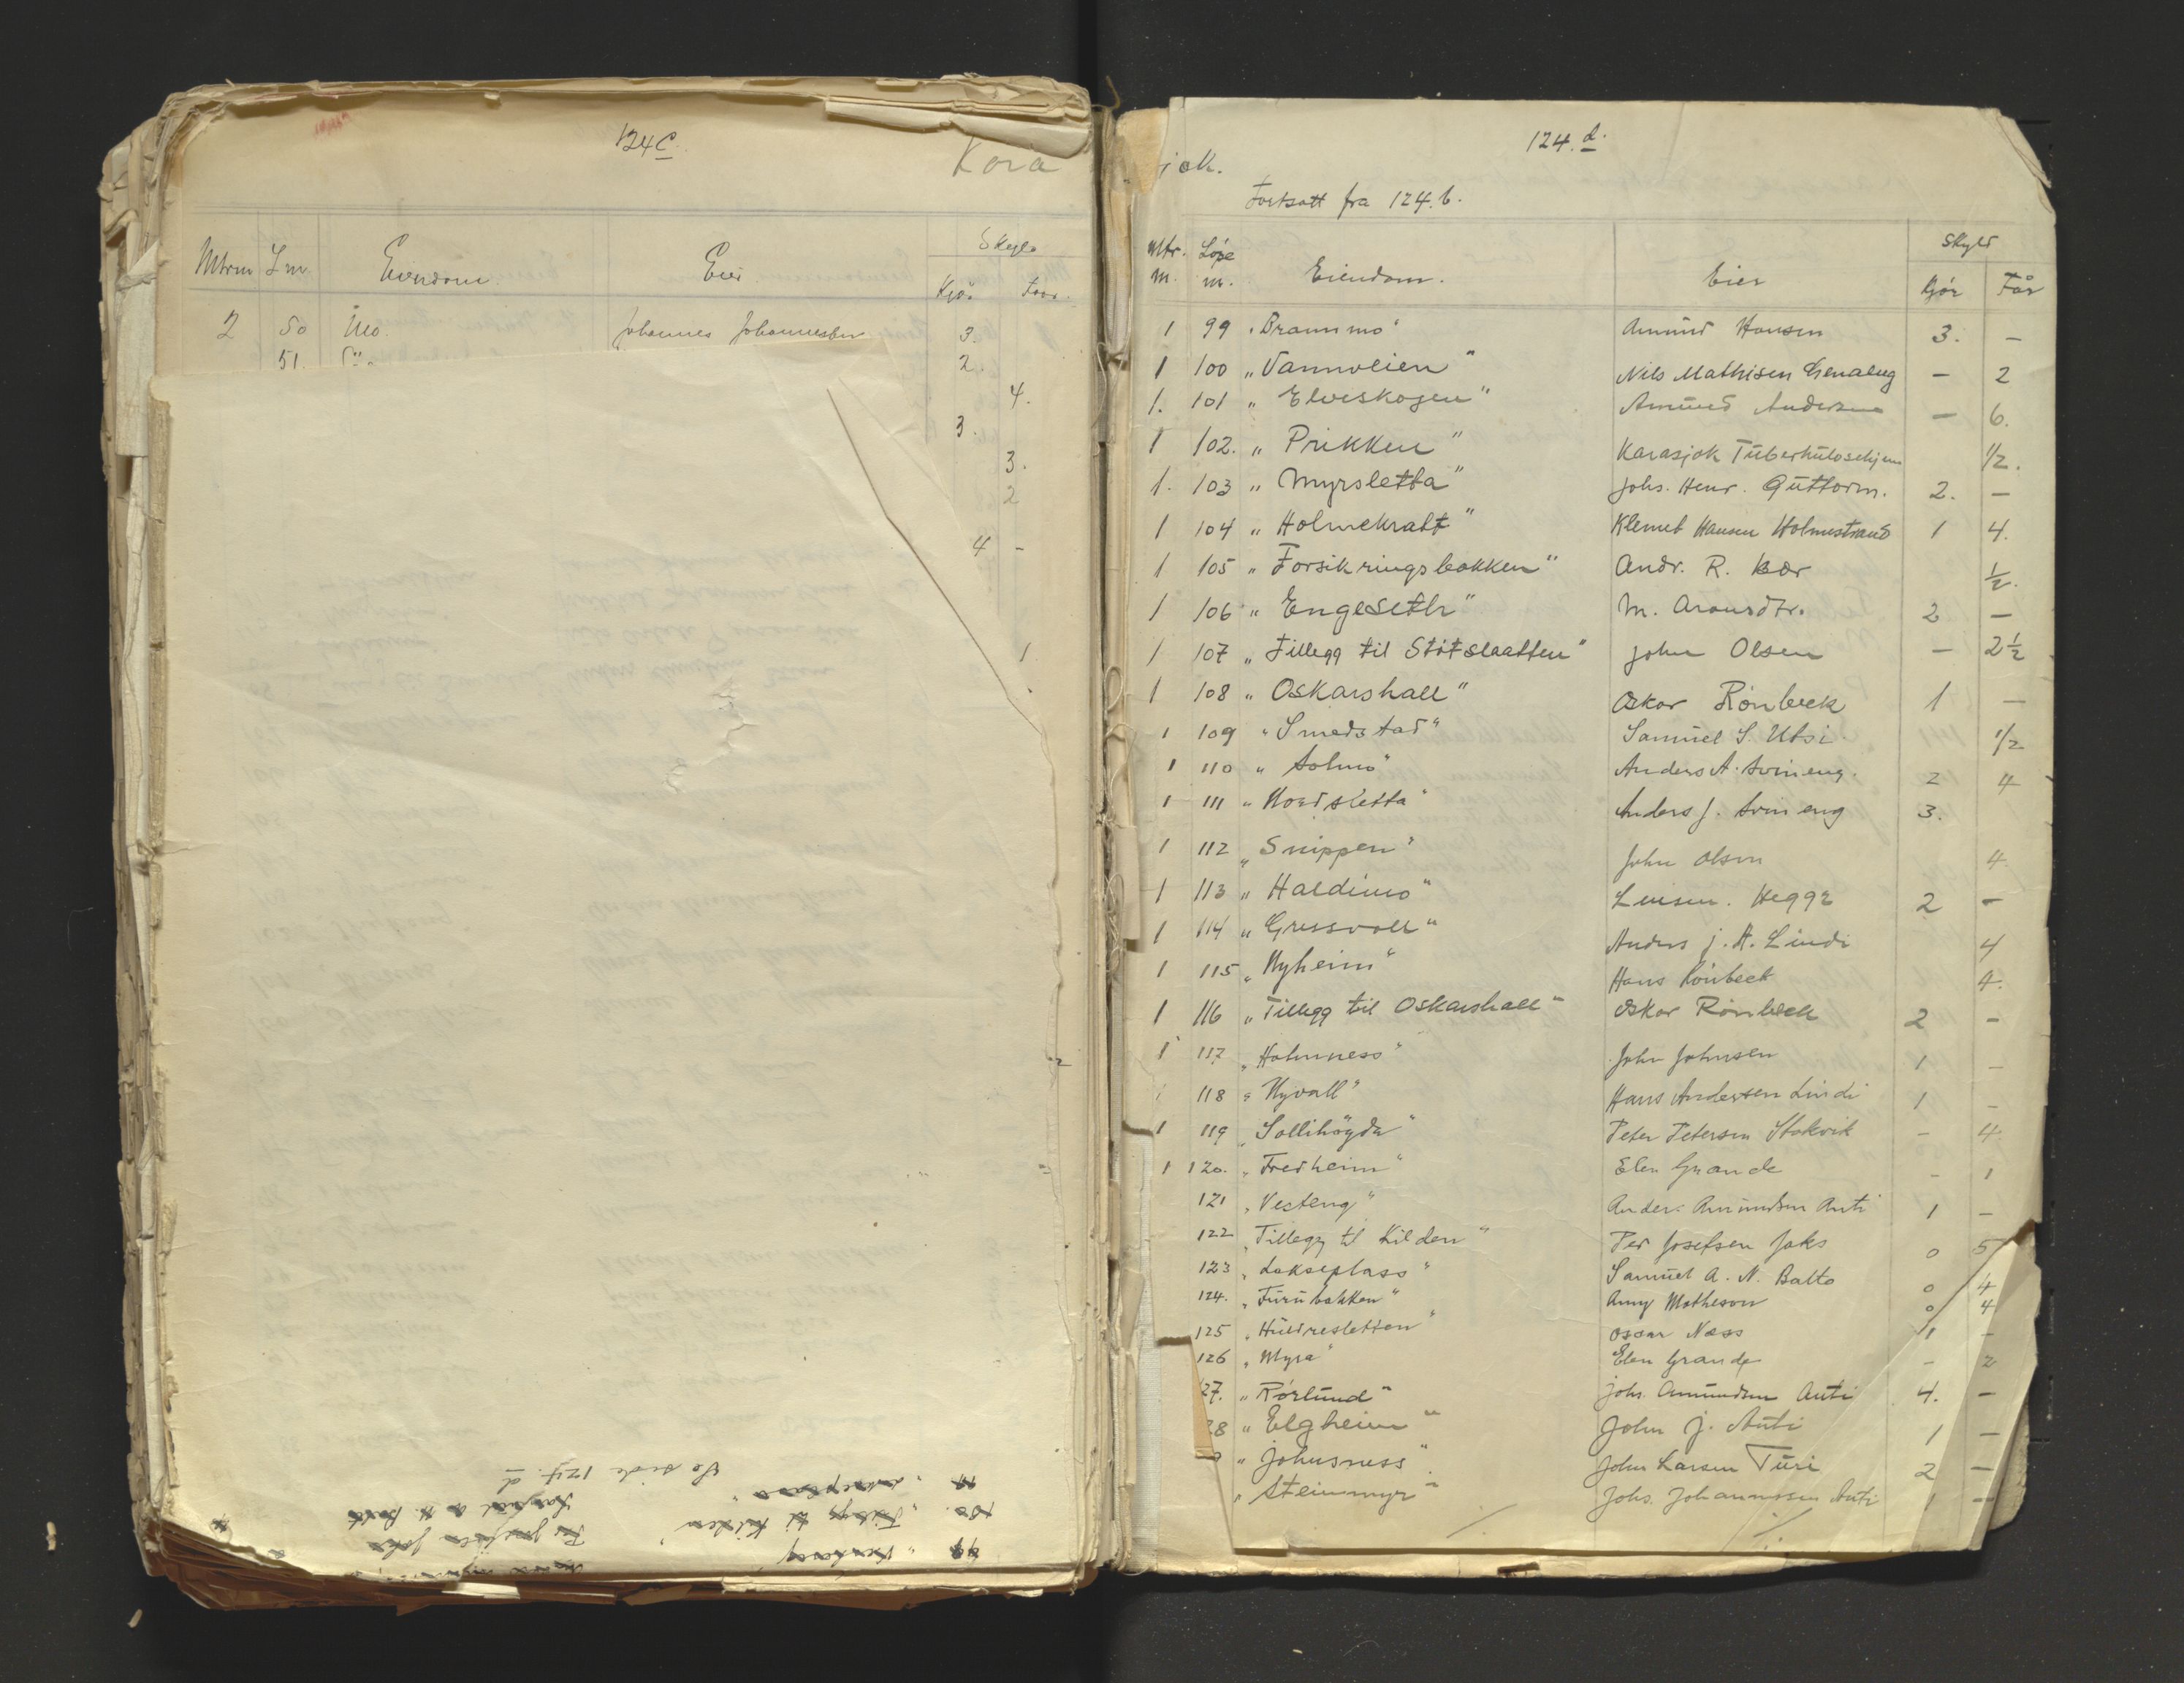 124 c.
Mtrn Lnr. Eiendom. Eier Skyld
Kjør Faar.
2 50 Mo. Johannes Johannessen 3.
51. 2
4.
3.
3.
2
4 -
1
Se side 124. d
Tillegg til Kilden
124. d.
jok.
Fortsatt fra 124. b.
Mtr. Løpe Eiendom. Eier Skyld
nr. Kjør Får
1 99 "Brannmo" Amund Hansen 3. -
1 100 "Vannveien" Nils Mathisen - 2
1. 101 "Elveskogen" Amund Andersen - 6.
1 102. "Prikken" Karasjok Tüberkülosehjem 1/2.
1. 103 "Myrsletta" Johs. Henr. Güttorm. 2. -
1 104 "Holmekratt" Klemet Hansen Holmestrand 1 4.
1 105 "Forsikringsbakken" Andr. R. Bær 1/2.
1 106 "Engeseth" M. Aronsdtr. 2 -
1 107 "Tillegg til Stötslaatten" John Olsen - 2 1/2
1 108 "Oskarshall" Oskar Rönbeck 1 -
1 109 "Smedstad" Samüel S. Utsi 1/2
1 110 "Solmo" Anders A. Svineng. 2 4
1 111 "Nordsletta" Anders J. Svineng 3.
1 112 "Snippen" John Olsen 4.
1 113 "Haldimo" Lensm. Hegge 2 -
1 114 "Gressvoll" Anders J. A. Lindi 4
1 115 "Nyheim" Hans Rönbeck 4.
1 116 "Tillegg til Oskarshall" Oskar Rönbeck 2 -
1 117 "Holmness" John Johnsen 1 -
118 "Nyvall" Hans Andersen Lindi 1 -
1 119 "Sollihögda" Peter Petersen Stokvik - 4
1 120. "Fredheim" Elen Grande - 1
121 "Vesteng" Anders Amundsen Anti 1 -
122 "Tillegg til Kilden" Per Josefsen Jaks 0 5
123 "Lakseplass" Samüel A. N. Balto 0 4
124. "Fürübakken" Amy Matheson 0 4
125 "Hüldresletten" Oscar Næss 1 -
126 "Myra" Elen Grande - 2
27. "Rörlünd" Johs. Amündsen Anti 4. -
28 "Elgheim" John J. Anti 1 -
9 "Johnsness" John Larsen Türi 2 -
"Steinmyr" Johs. Johannessen Anti 1 -